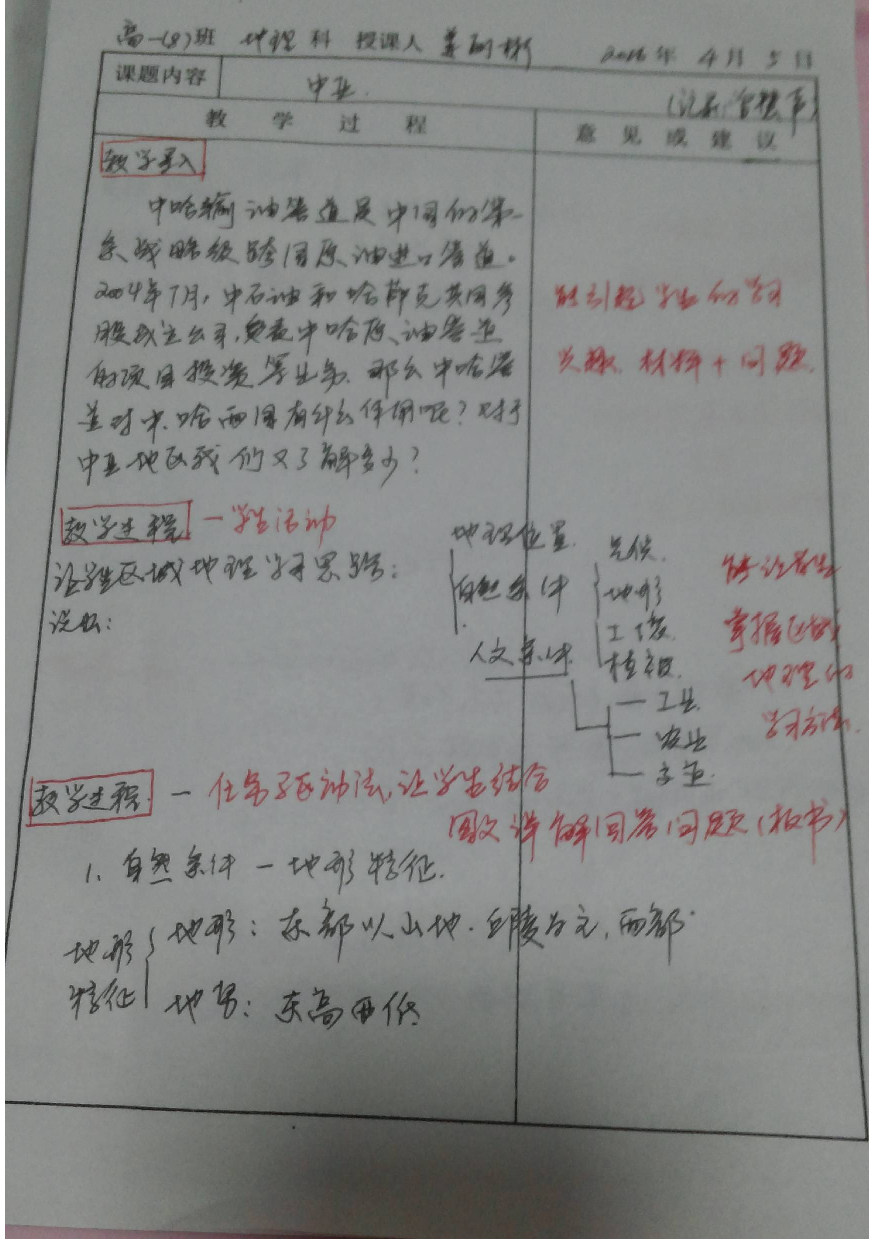 高一(8)班 地理 科 授课人 2016 年 4 月 5 日
课题内容 中亚.
教 学 过 程 意 见 或 建 议
教学导入
中哈输油管道是中国的第一
条战略级跨国原油进口管道。
2004年7月,中石油和哈 共同参
股成立公司,负责中哈原油管道
的项目投资等业务.那么中哈管
道对中.哈两国有什么作用呢?对于
中亚地区我们又了解多少?
能引起学生的学习
兴趣.材料+问题.
教学过程 一学生活动
让学生区域地理学习思路:
说出:
地理位置.
自然条件
气候.
地形
土壤.
植被.
人文条件.
工业.
农业
交通.
能让学生
掌握区域
地理的
学习方法.
教学过程. 一 任务驱动法,让学生结合
图文详解回答问题(板书)
1、自然条件 一 地形特征.
地形特征
地形:东部以山地.丘陵为主,西部
地势:东高西低